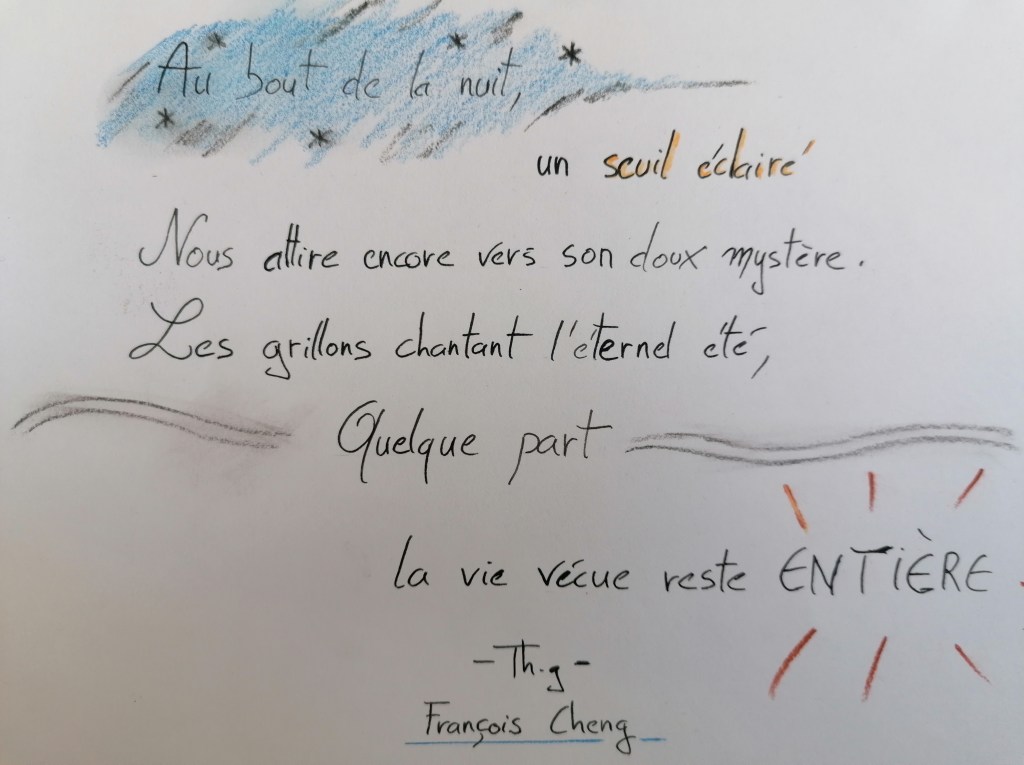 Au bout de la nuit,
un seuil éclairé
Nous attire encore vers son doux mystère.
Les grillons chantant l'éternel été,
Quelque part
la vie vécue reste ENTIÈRE.
- Th.g -
François Cheng